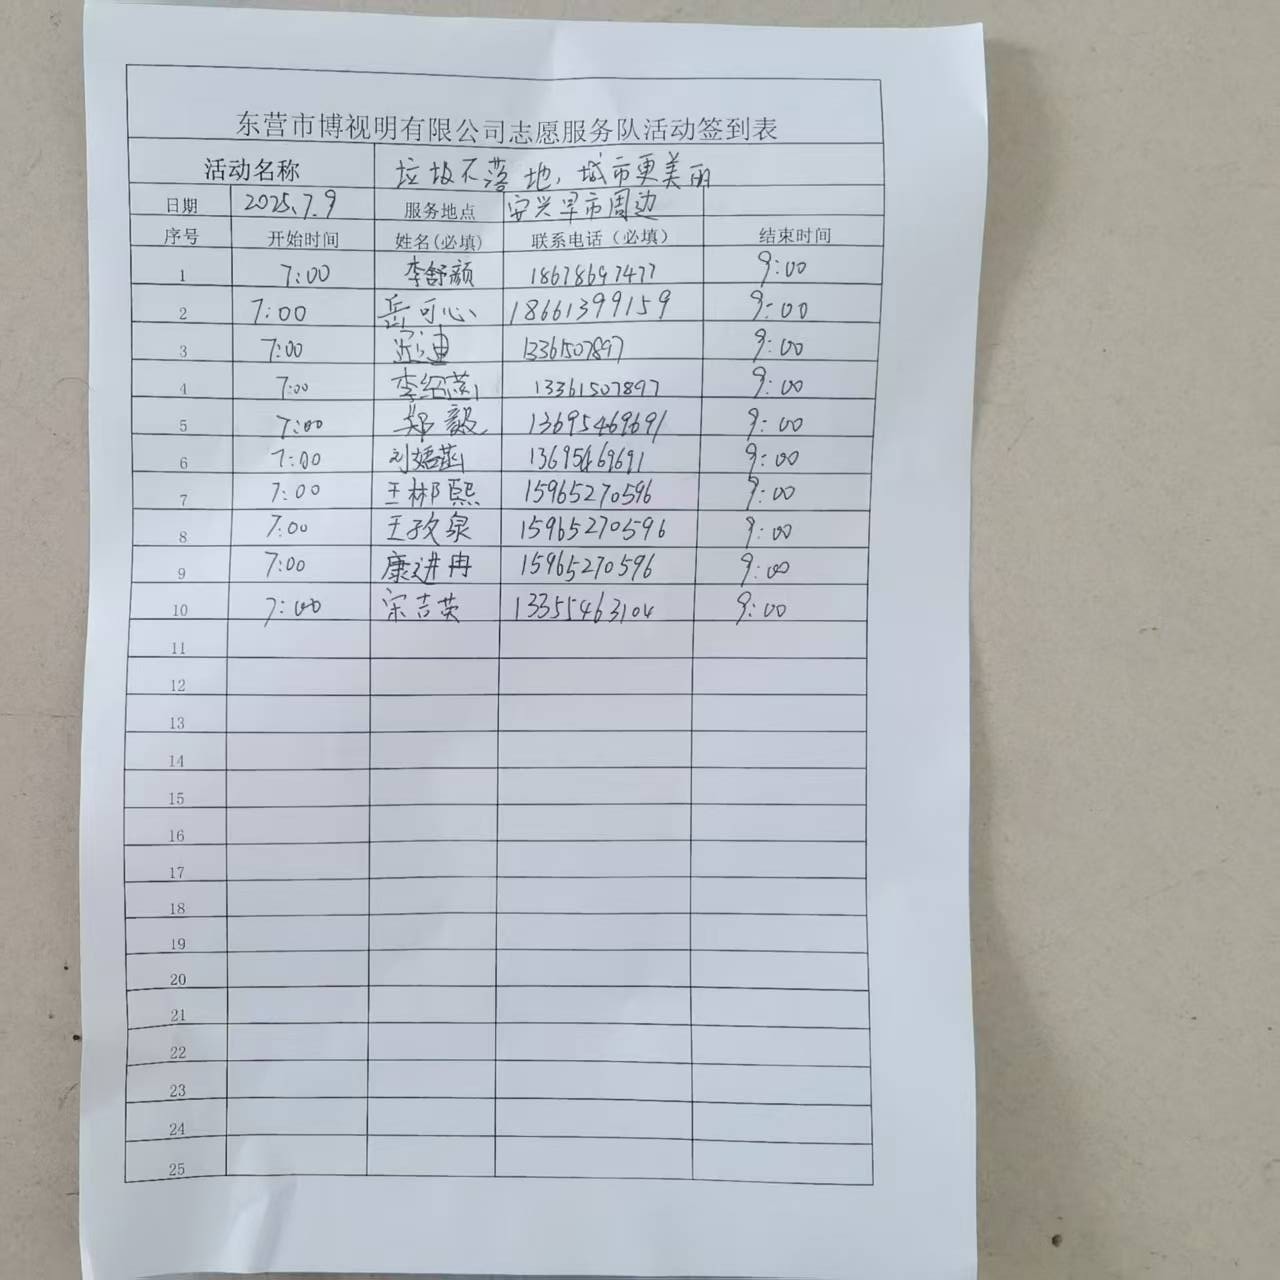 东营市博视明有限公司志愿服务队活动签到表
活动名称 垃圾不落地,城市更美丽
日期 2025.7.9 服务地点 安兴早市周边
序号 开始时间 姓名(必填) 联系电话（必填） 结束时间
1 7:00 李舒颜 18678697477 9:00
2 7:00 岳可心 18661399159 9:00
3 7:00 迪 13361507897 9:00
4 7:00 李绍 13361507897 9:00
5 7:00 郑毅 13695469691 9:00
6 7:00 刘婼菡 13695469691 9:00
7 7:00 王彬熙 15965270596 9:00
8 7:00 王孜泉 15965270596 9:00
9 7:00 康进冉 15965270596 9:00
10 7:00 宋吉英 13355463104 9:00
11
12
13
14
15
16
17
18
19
20
21
22
23
24
25